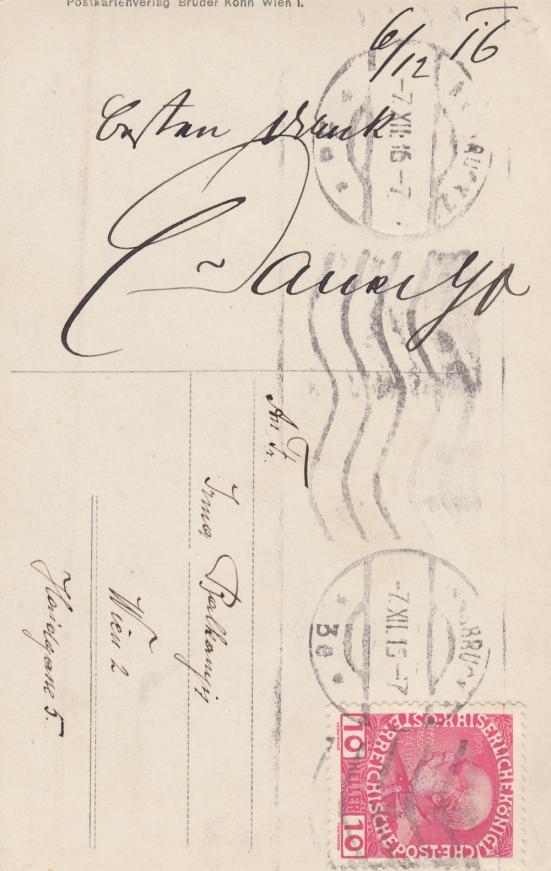 Postkartenverlag Brüder Kohn Wien I.
6/12 16
besten Dank
An Fr.
Irma
Wien 2
Haidgasse 5.
-7.XII.16-7
-7.XII.16-7
3e
KAISERLICHE KÖNIGL
ÖSTERREICHISCHE POST
10 HELLER 10